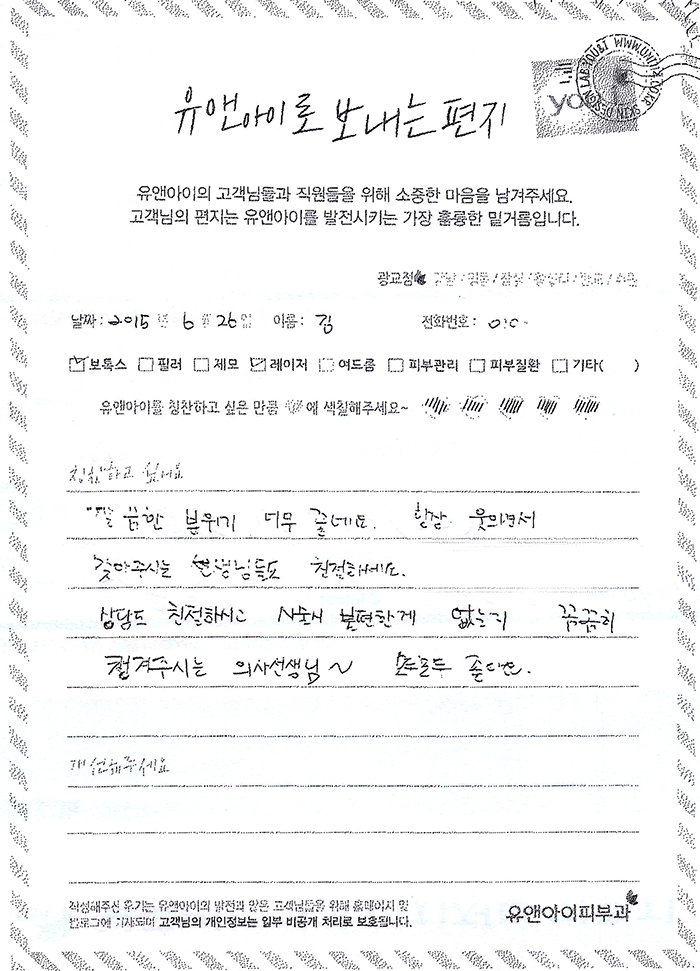 SKIN DESIGN LAB YOU&I WWW.UNI
yo
유앤아이로 보내는 편지
유앤아이의 고객님들과 직원들을 위해 소중한 마음을 남겨주세요.
고객님의 편지는 유앤아이를 발전시키는 가장 훌륭한 밑거름입니다.
광교점 강남/명동/잠실/왕십리/판교/수원
날짜: 2015 년 6 월 26 일 이름: 김 전화번호: 010-
보톡스 필러 제모 레이저 여드름 피부관리 피부질환 기타( )
유앤아이를 칭찬하고 싶은 만큼 에 색칠해주세요~
칭찬하고 싶어요
깔끔한 분위기 너무 좋네요. 항상 웃으면서
맞아주시는 선생님들도 친절하세요.
상담도 친절하시고 시술시 불편한게 없는지 꼼꼼히
챙겨주시는 의사선생님~ 모두모두 좋아요.
개선해주세요
작성해주신 후기는 유앤아이의 발전과 많은 고객님들을 위해 홈페이지 및
블로그에 기재되며 고객님의 개인정보는 일부 비공개 처리로 보호됩니다.
유앤아이피부과